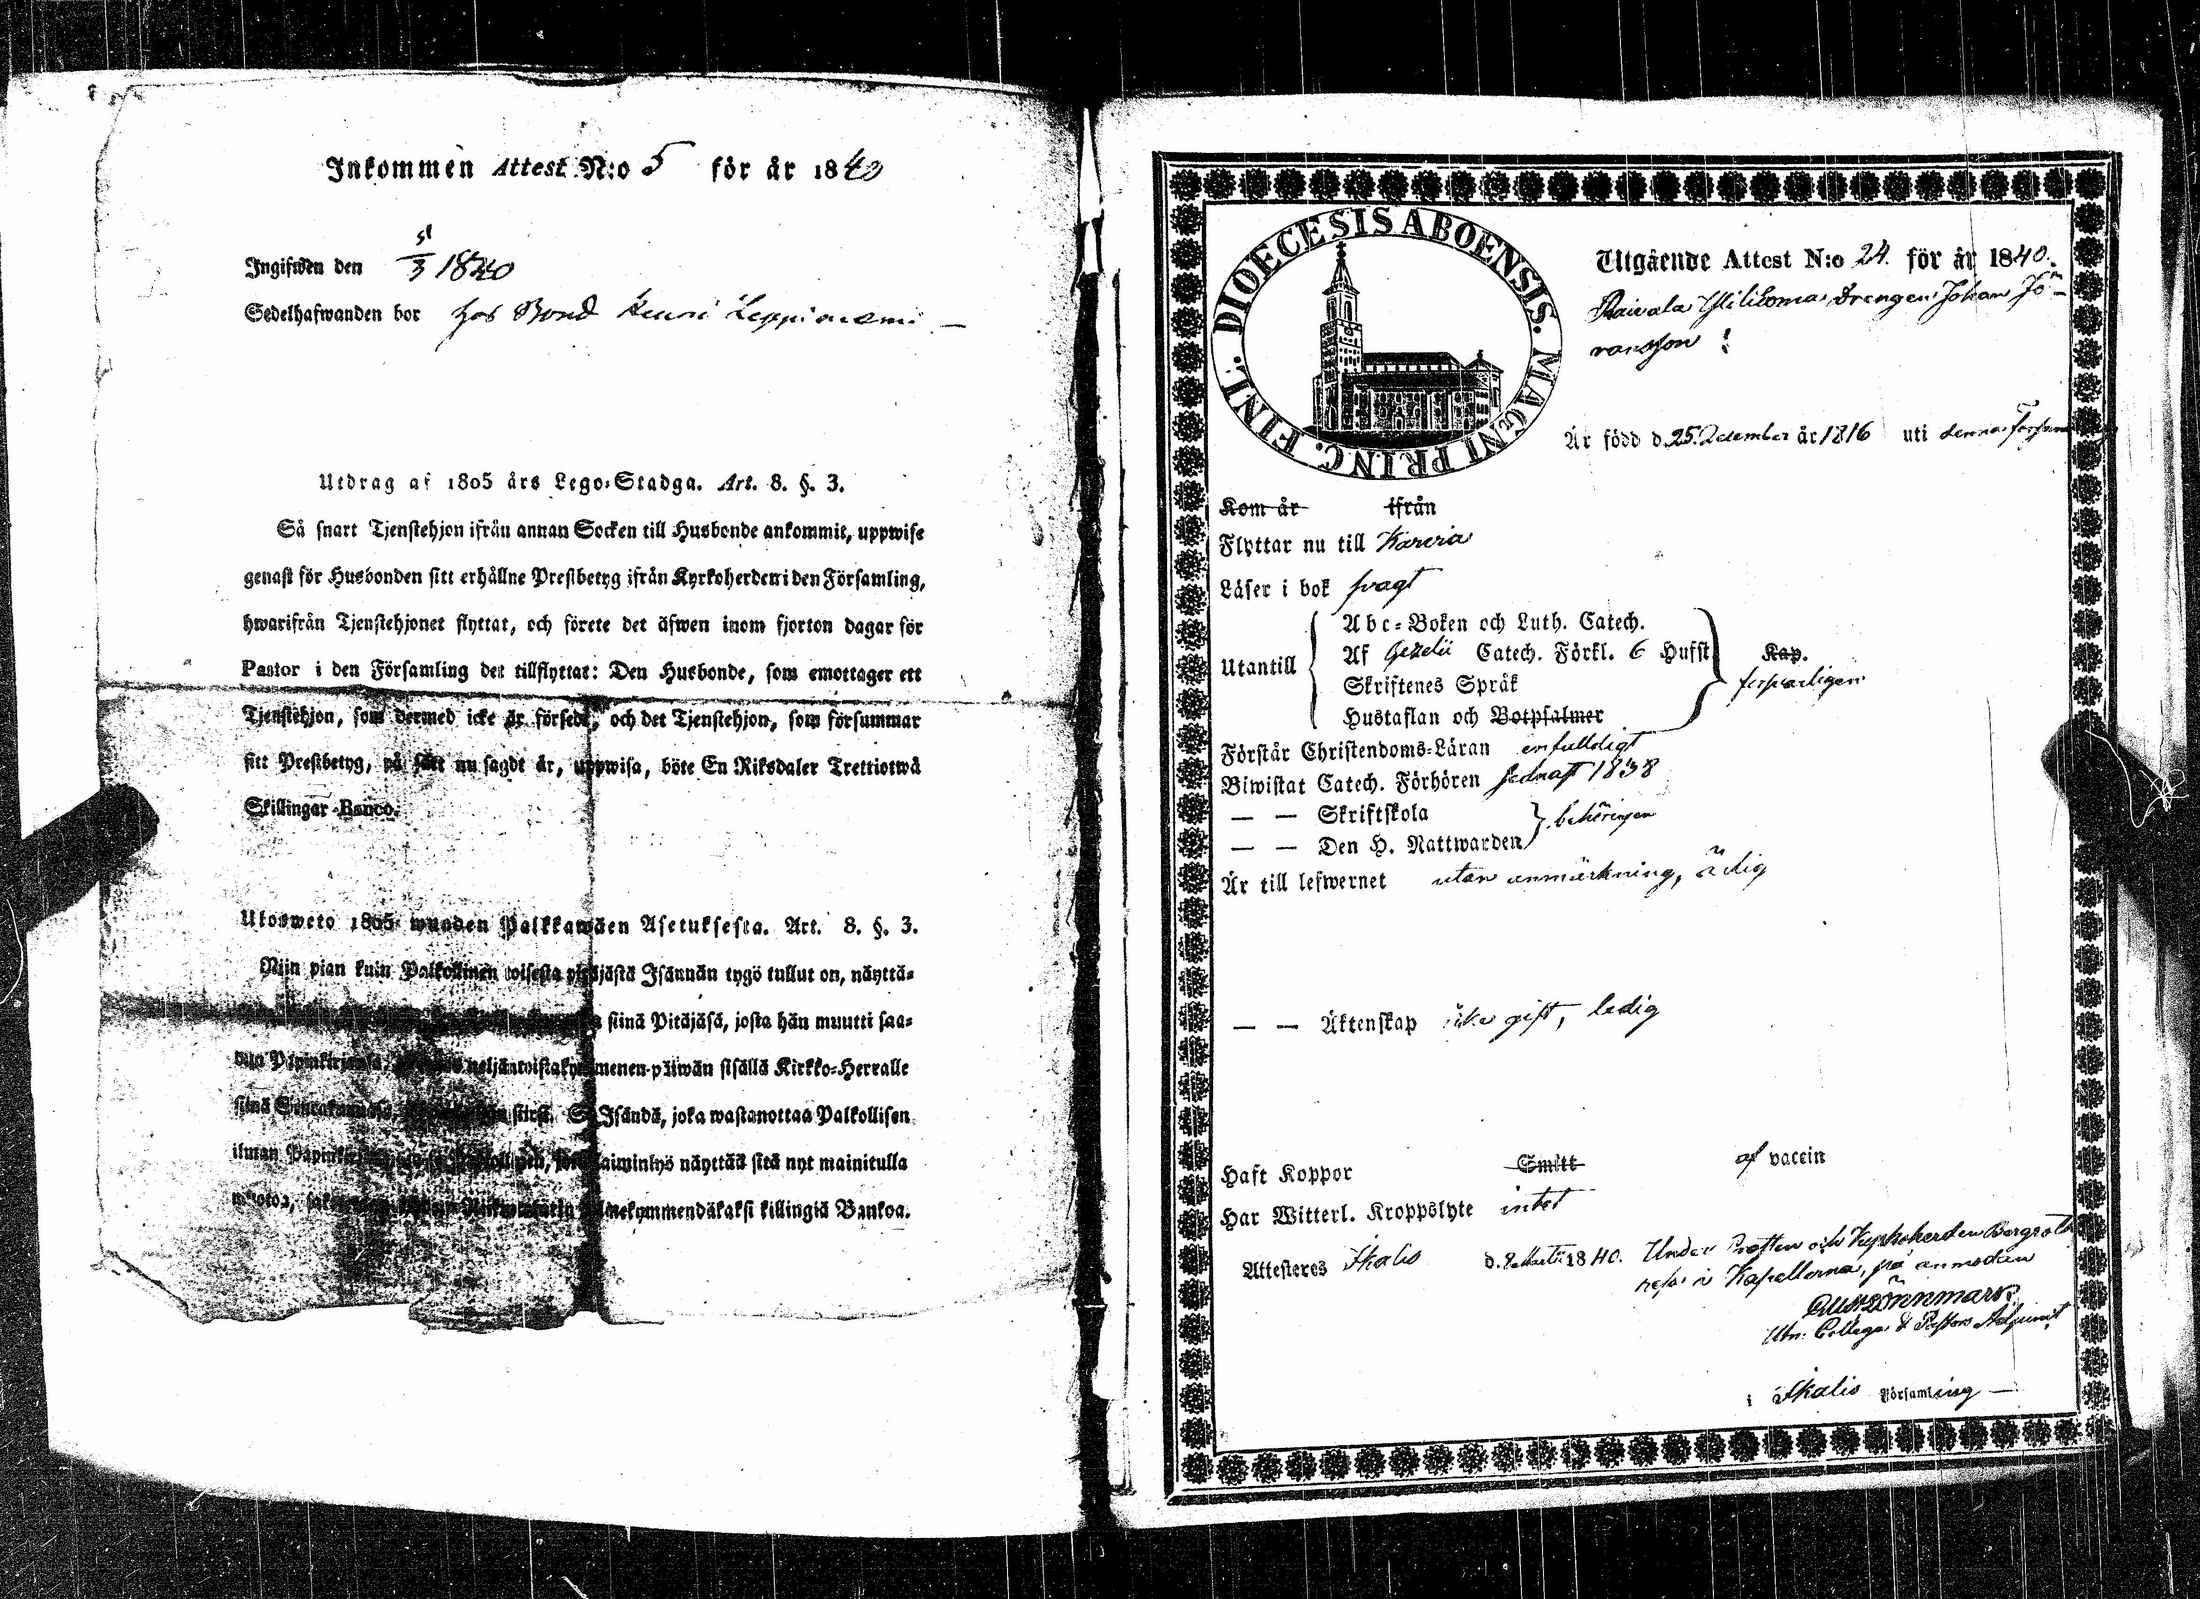 Inkommen Attest N:o 5 för år 1840
Ingifwen den 1/3 1840
Sedelhafwanden bor hos Bond Henric Leppiniemi
Utdrag af 1805 års Lego-Stadga. Art. 8. §. 3.
Så snart Tjenstehjon ifrån annan Socken till Husbonde ankommit, uppwise
genast för Husbonden sitt erhållne Prestbetyg ifrån Kyrkoherden i den Församling,
hwarifrån Tjenstehjonet flyttat, och förete det äfwen inom fjorton dagar för
Pastor i den Församling det tillflyttat: Den Husbonde, som emottager ett
Tjenstehjon, som dermed icke är försedt, och det Tjenstehjon, som försummar
sitt Prestbetyg, på sätt nu sagdt är, uppwisa, böte En Riksdaler Trettiotwå
Skillingar Banco.
Ulosweto 1805 wuoden Palkkawäen Asetuksesta. Art. 8. §. 3.
Niin pian kuin Palkollinen toisesta pitäjästä Isännän tygö tullut on, näyttä-
siinä Pitäjäsä, josta hän muutti saa-
dun Papinkirjansa, neljäntoistakymmenen päiwän sisällä Kirkko-Herralle
siinä Seurakunnasa, siirsi. Se Isändä, joka wastanottaa Palkollisen
ilman laiminlyö näyttää sitä nyt mainitulla
kolmekymmendäkaksi killingiä Bankoa.
DIOECESIS ABOENSIS. MAGNI PRINC. FINL.
Utgående Attest N:o 24. för år 1840.
Raivala Ylilikoma Drengen Johan Jö-
ransson !
Är född d. 25. December år 1816 uti denna Församl
Kom år ifrån
Flyttar nu till Karvia
Läser i bok svagt
Abc-Boken och Luth. Catech.
Utantill Af Gezelii Catech. Förkl. 6 Hufst Kap.
Skriftenes Språk försvarligen
Hustaflan och Botpsalmer
Förstår Christendoms-Läran enfaldigt
Biwistat Catech. Förhören sednast 1838
— — Skriftskola
— — Den H. Nattwarden } behörigen
Är till lefwernet utan anmärkning, ärlig
— — Äktenskap icke gift, ledig
Haft Koppor Smitt af vaccin
Har Witterl. Kroppslyte intet
Attesteres Ikalis d. 2 Martii 1840. Under Prosten och Kyrkoherden Bergroths
resa i Kapellerna, på anmodan
Gust Lönnmark
Utn: Collega & Pastors Adjunct
i Ikalis Församling —